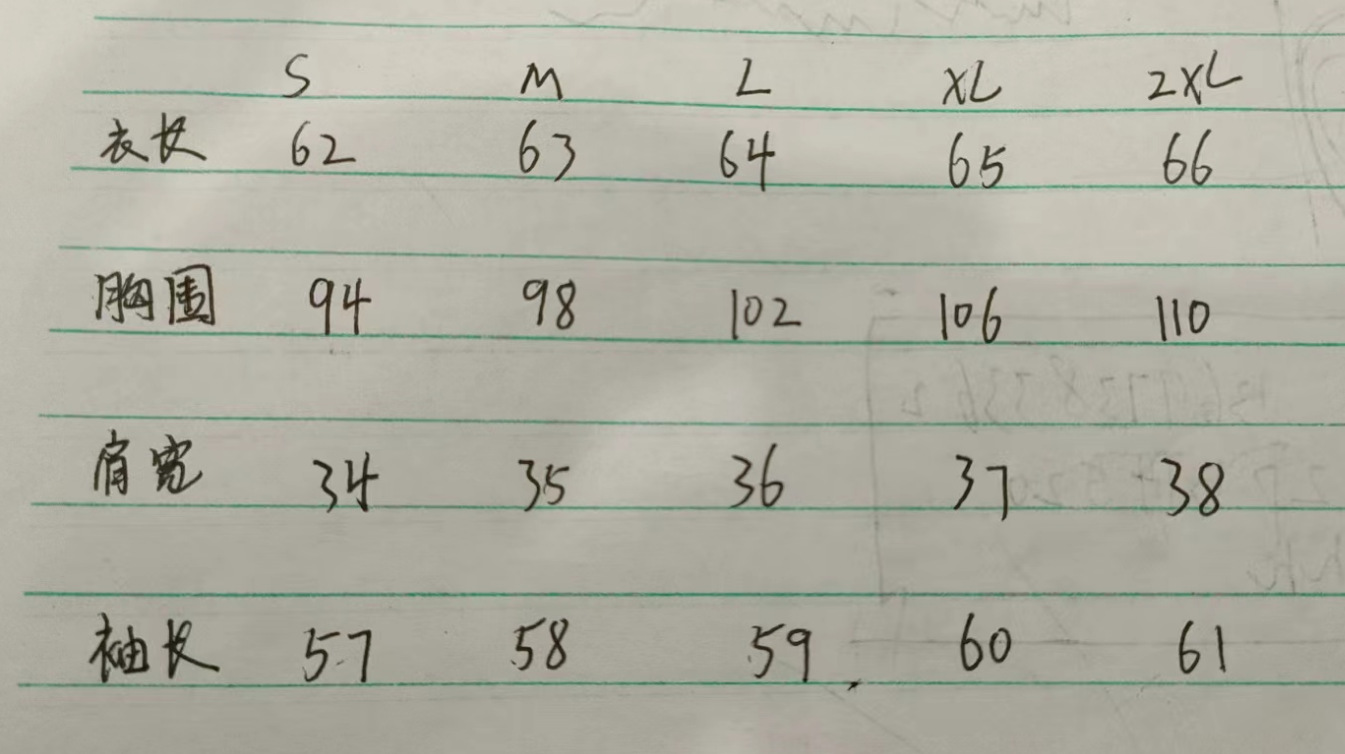 S M L XL 2XL
衣长 62 63 64 65 66
胸围 94 98 102 106 110
肩宽 34 35 36 37 38
袖长 57 58 59 60 61